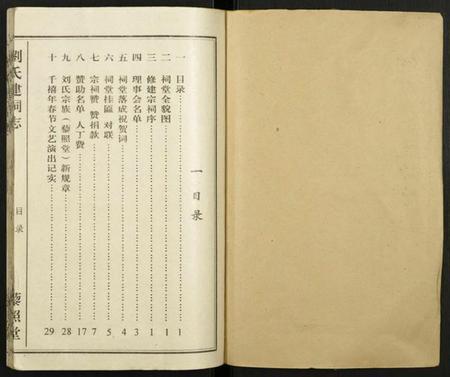 一 目录
一 目录 1
二 祠堂全貌图 1
三 修建宗祠序 1
四 理事会名单 3
五 祠堂落成祝贺词 4
六 祠堂挂匾 对联 5
七 宗祠赞 赞捐款 7
八 赞助名单 人丁费 17
九 刘氏宗族(藜照堂)新规章 28
十 千禧年春节文艺演出记实 29
刘氏建祠志
目录
藜照堂